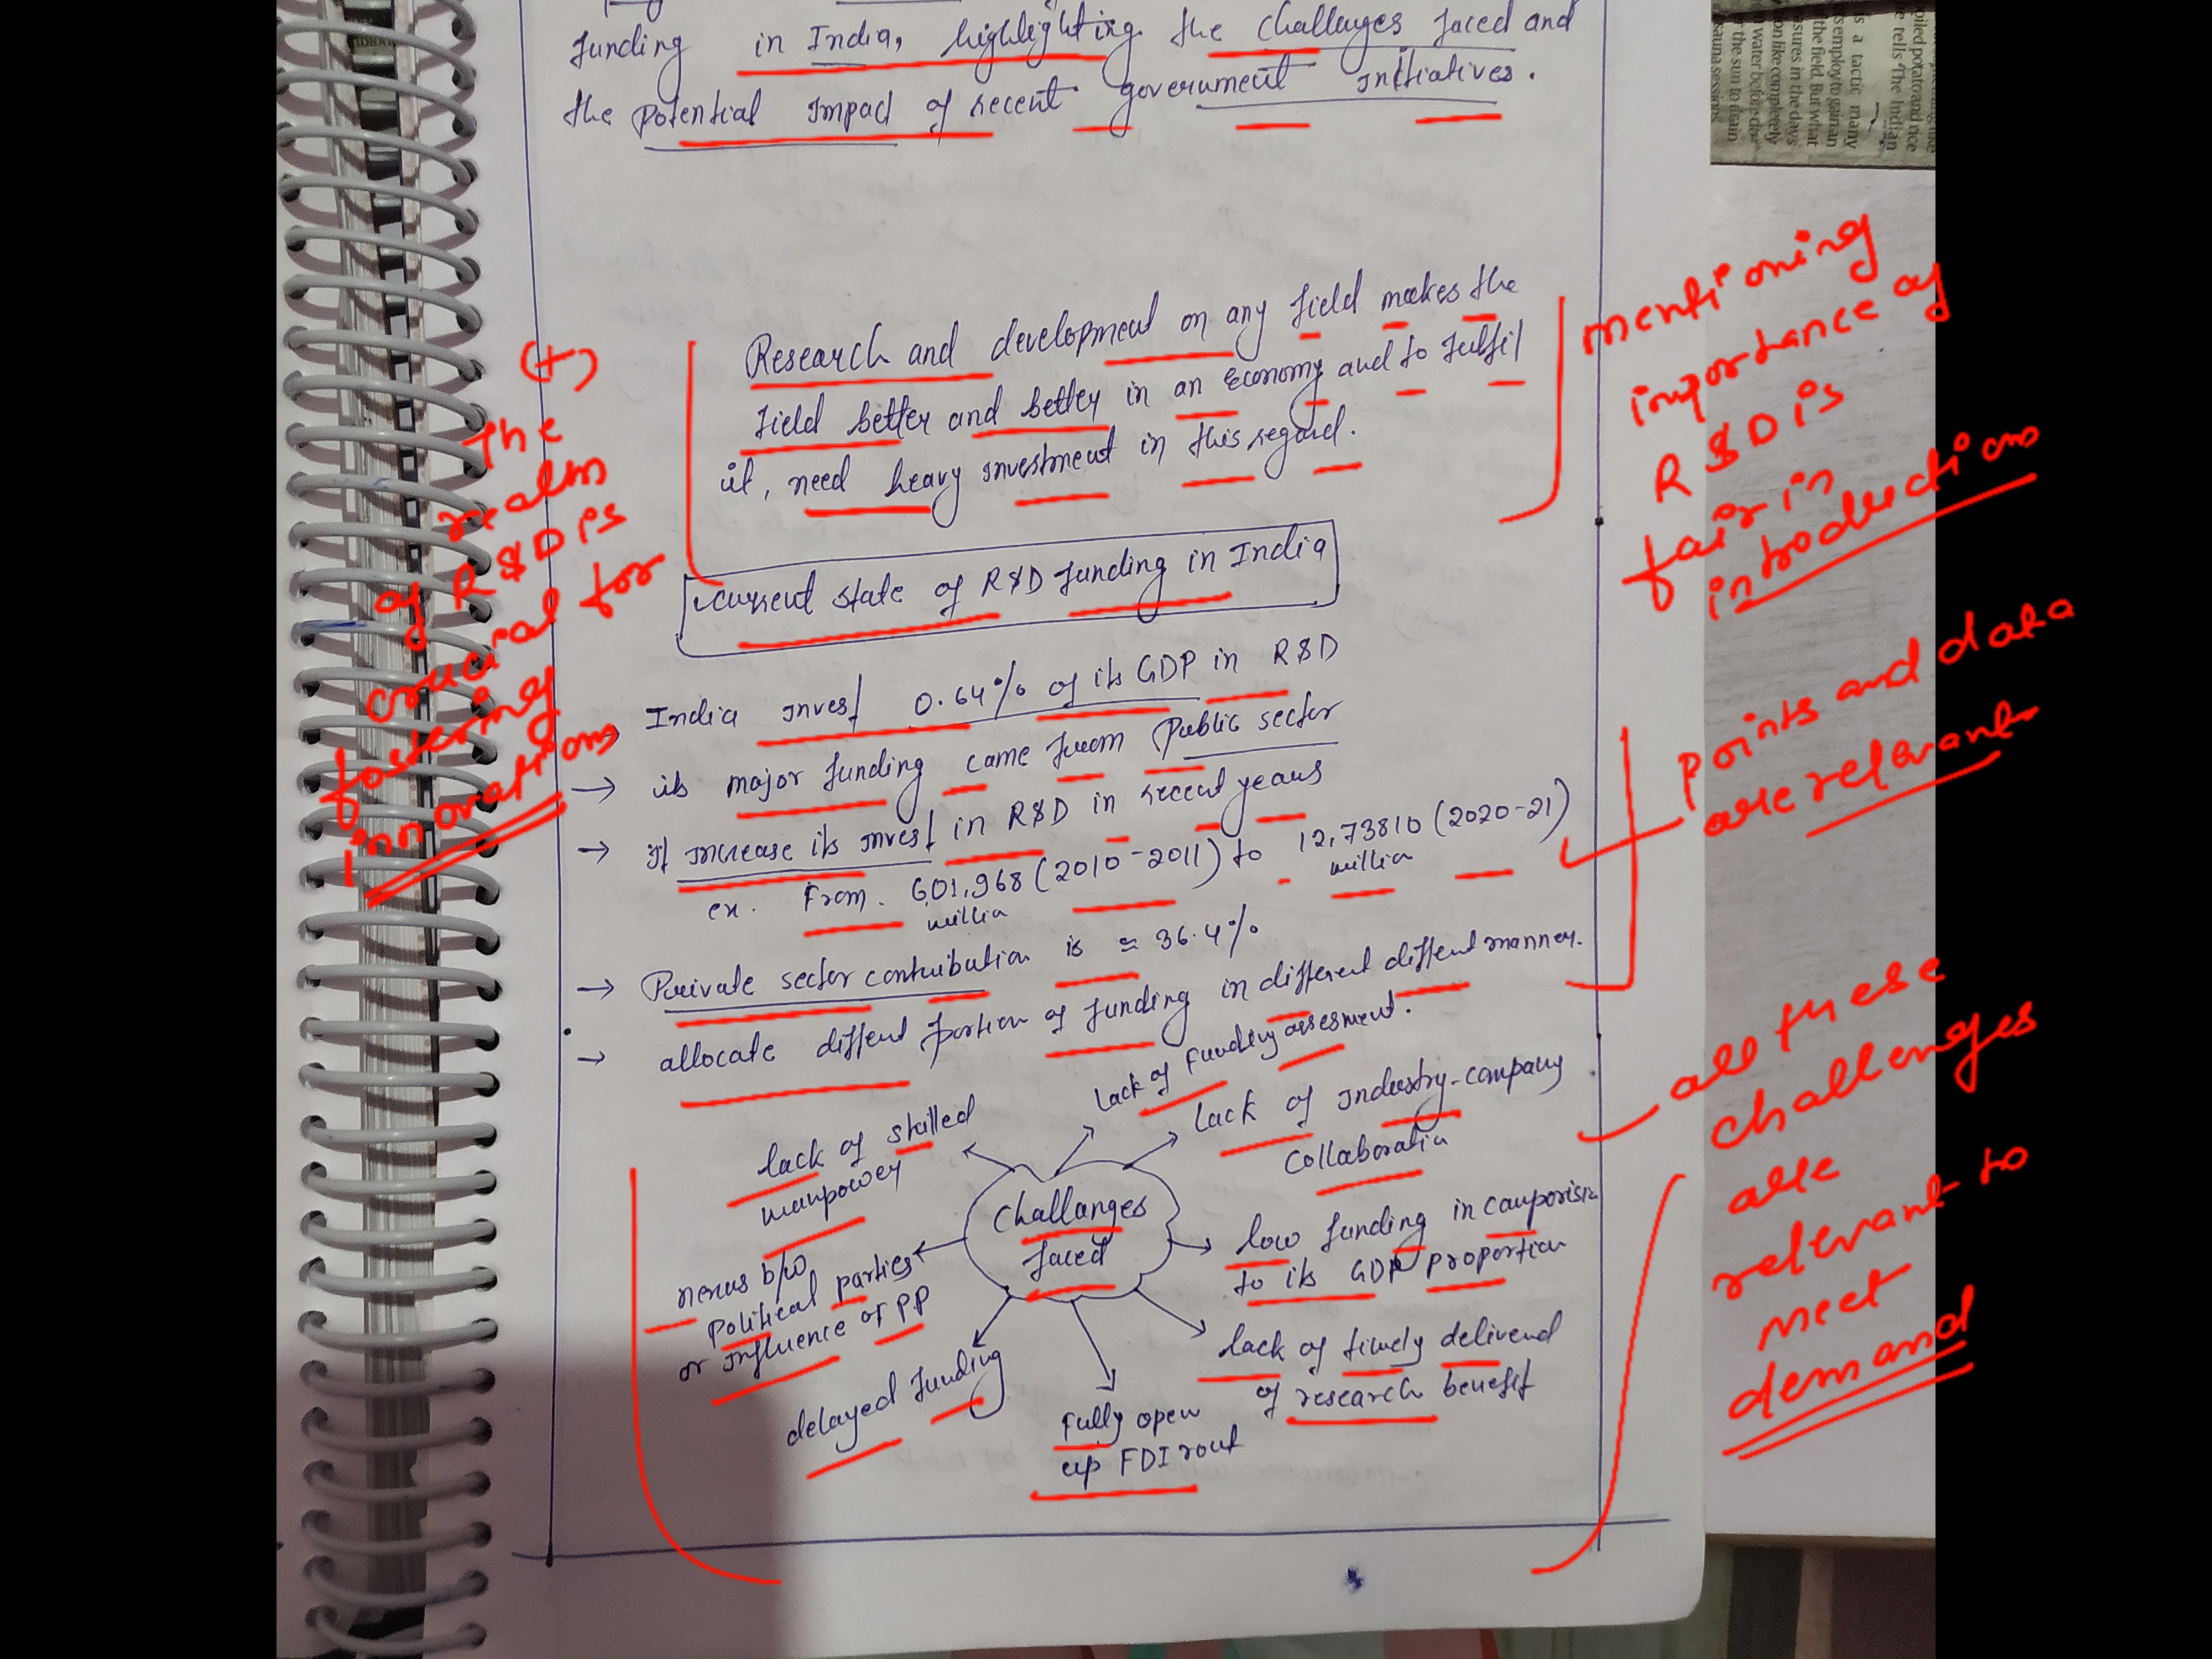 funding in India, highlighting the challenges faced and
the potential Impact of recent government initiatives.
Research and development on any field makes the
field better and better in an Economy and to fulfil
it, need heavy investment in this regard.
Current state of R&D funding in India
→ India invest 0.64% of its GDP in R&D
→ its major funding came from Public sector
→ It increase its invest in R&D in recent years
ex. From. 601,968 (2010-2011) to 12,73810 (2020-21)
million million
→ Private sector contribution is ≈ 36.4%
→ allocate diffent portion of funding in different diffent manner.
Challanges
faced
lack of skilled
manpower
Lack of Funding assesment.
lack of Industry-company
Collaboration
low funding in comparison
to its GDP proportion
lack of timely
of research benefit
Fully open
up FDI rout
delayed funding
nexus b/w
political parties
or influence of P.P
(+)
The
realm
of R&D is
crucial for
fostering
innovations
mentioning
importance of
R&D is
fair in
introduction
points and data
are relevant
all these
challenges
are
relevant to
meet
demand
is a tactic many
the field. But what